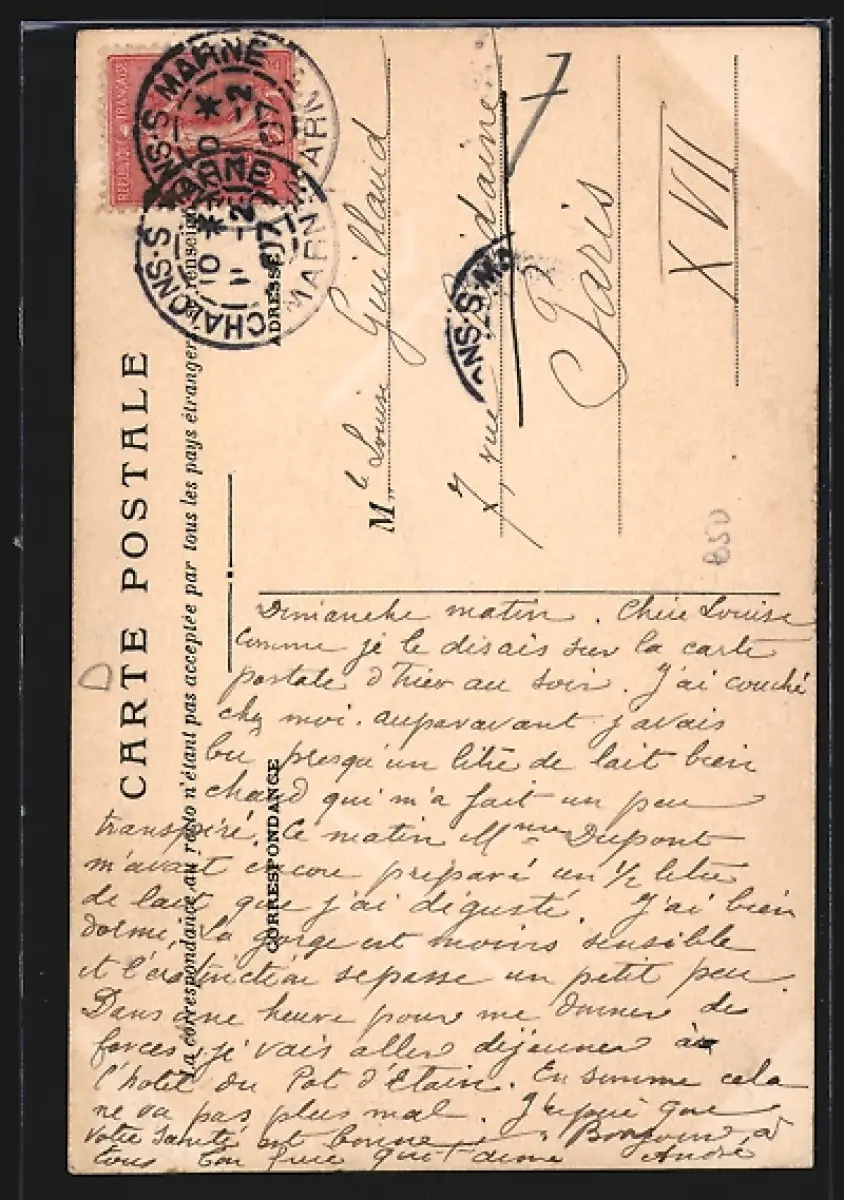 CARTE POSTALE
La correspondance au recto n'étant pas acceptée par tous les pays étrangers
ADRESSE
CORRESPONDANCE
REPUBLIQUE FRANÇAISE
CHALONS-S-MARNE
10 * 11 -2 07
CHALONS-S-MARNE
10 * -2 07
MARNE
ONS-S-M
Mle Louise Guilland
7, rue
Paris
XVII
7
850
Dimanche matin. Chère Louise
Comme je le disais sur la carte
postale d'hier au soir. J'ai couché
chez moi. auparavant j'avais
bu presqu'un litre de lait bien
chaud qui m'a fait un peu
transpiré. Ce matin Mme Dupont
m'avait encore préparé un 1/2 litre
de lait que j'ai dégusté. J'ai bien
dormi. La gorge est moins sensible
et l'extinction se passe un petit peu.
Dans une heure pour me donner des
forces, je vais aller déjeuner à
l'hotel du Pot d'Etain. En somme cela
ne va pas plus mal. J'espère que
votre santé est bonne. Bonjour à
tous Ton frère qui t'aime André